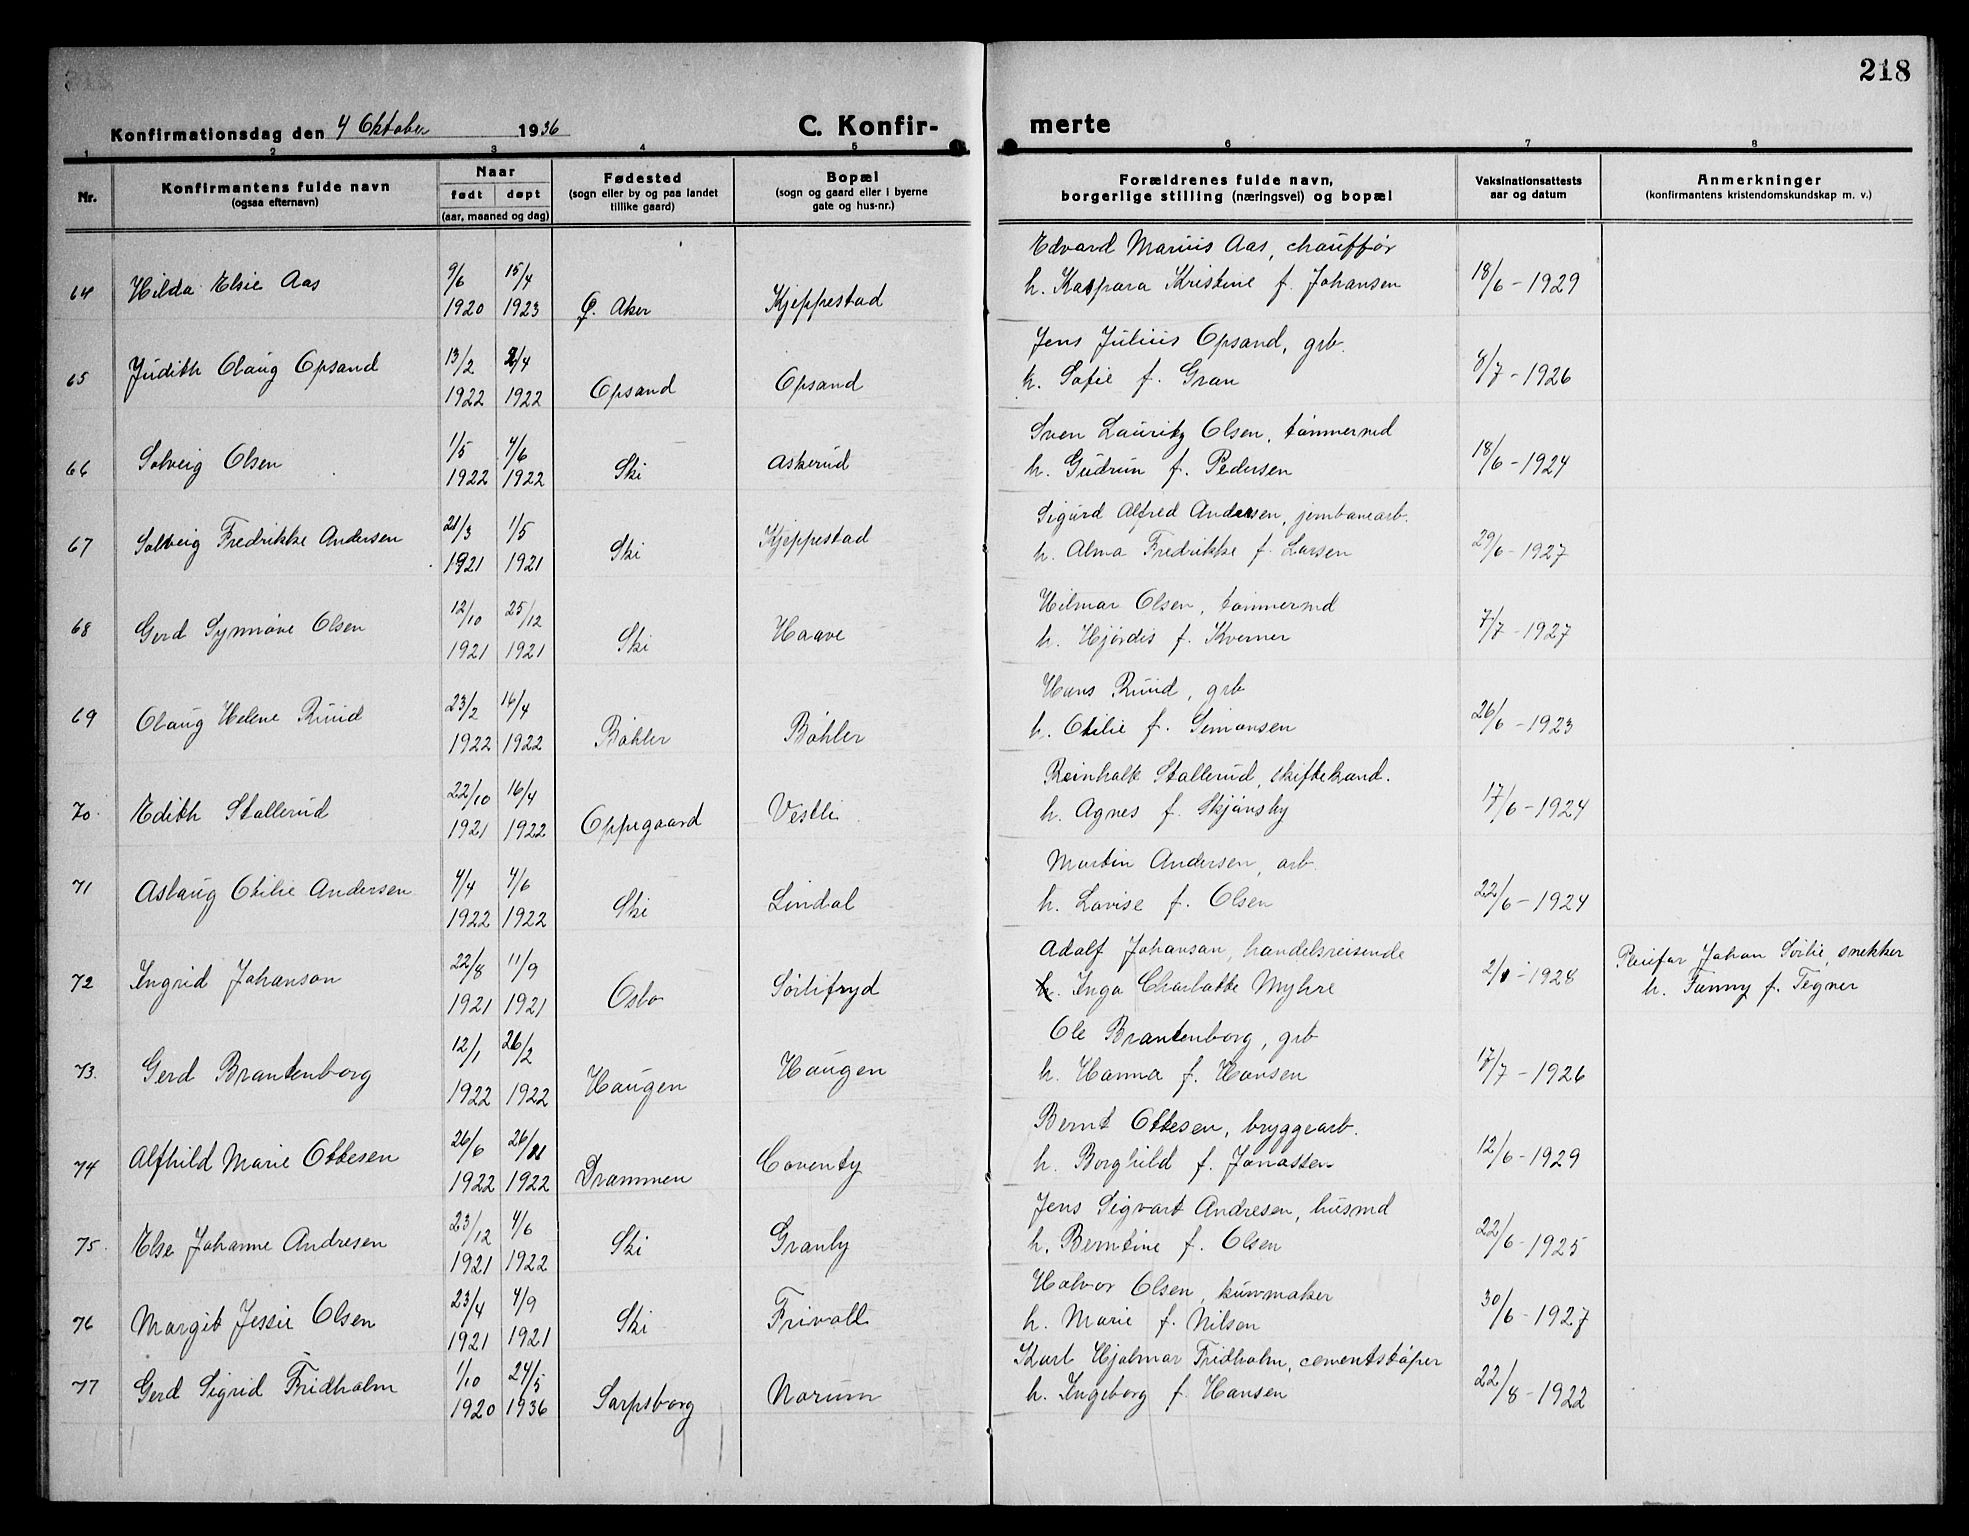 218
Konfirmationsdag den 4 Oktober 1936 C. Konfir- merte
1 2 3 4 5 6 7 8
Nr.
Konfirmantens fulde navn
(ogsaa efternavn)
Naar
født døpt
(aar, maaned og dag)
Fødested
(sogn eller by og paa landet
tillike gaard)
Bopæl
(sogn og gaard eller i byerne
gate og hus-nr.)
Forældrenes fulde navn,
borgerlige stilling (næringsvei) og bopæl
Vaksinationsattests
aar og datum
Anmerkninger
(konfirmantens kristendomskundskap m. v.)
Edvard Marius Aas, chauffør
64 Hilda Elsie Aas 9/6 1920 15/4 1923 Ø. Aker Kjeppestad h. Kaspara Kristine f. Johansen 18/6 - 1929
Jens Julius Opsand, grb.
65 Judith Olaug Opsand 13/2 1922 2/4 1922 Opsand Opsand h. Sofie f. Gran 8/7 - 1926
Sven Lauritz Olsen, tømmermd
66 Solveig Olsen 1/5 1922 4/6 1922 Ski Askerud h. Gudrun f. Pedersen 18/6 - 1924
Sigurd Alfred Andersen, jernbanearb.
67 Solveig Fredrikke Andersen 21/3 1921 1/5 1921 Ski Kjeppestad h. Alma Fredrikke f. Larsen 29/6 - 1927
Hilmar Olsen, tømmermd
68 Gerd Synnøve Olsen 12/10 1921 25/12 1921 Ski Haave h. Hjørdis f. Kverner 7/7 - 1927
Hans Ruud, grb
69 Olaug Helene Ruud 23/2 1922 16/4 1922 Bøhler Bøhler h. Otilie f. Simonsen 26/6 - 1923
Stallerud, skiftekond.
70. Edith Stallerud 22/10 1921 16/4 1922 Oppegaard Vestli h. Agnes f. Skjønsby 17/6 - 1924
Martin Andersen, arb.
71 Aslaug Otilie Andersen 4/4 1922 4/6 1922 Ski Lindal h. Lovise f. Olsen 22/6 - 1924
Adolf Johanson, handelsreisende
72 Ingrid Johanson 22/8 1921 11/9 1921 Oslo Sørlifryd h. Inga Charlotte Myhre 2/1 - 1928 Pleiefar Johan Sørlie, snekker
h. Fanny f. Tegner
Ole Brantenborg, grb
73. Gerd Brantenborg 12/1 1922 26/2 1922 Haugen Haugen h. Hanna f. Hansen 17/7 - 1926
Bernt Ottesen, bryggearb.
74 Alfhild Marie Ottesen 26/6 1922 26/11 1922 Drammen Coventy h. Borghild f. Jonassen 12/6 - 1929
Jens Sigvart Andresen, husmd
75. Else Johanne Andresen 23/12 1921 4/6 1922 Ski Granly h. Berntine f. Olsen 22/6 - 1925
Halvor Olsen, kurvmaker
76 Margit Jessie Olsen 23/4 1921 4/9 1921 Ski Frivoll h. Marie f. Nilsen 30/6 - 1927
Karl Hjalmar Fridholm, cementstøper
77 Gerd Sigrid Fridholm 1/10 1920 24/5 1936 Sarpsborg Norum h. Ingeborg f. Hansen 22/8 - 1922